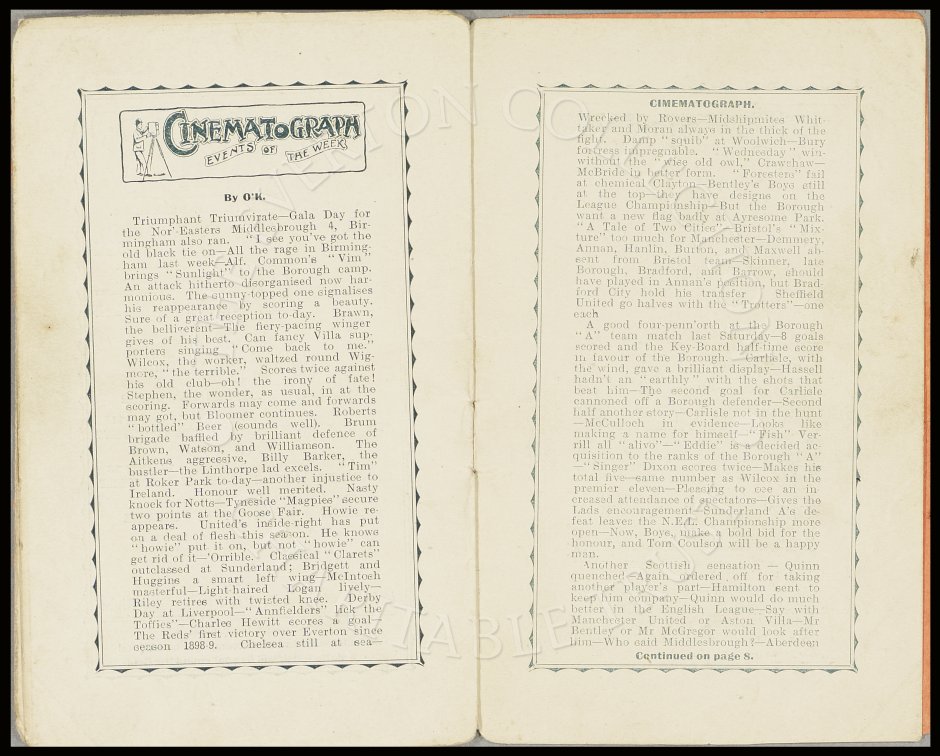 CINEMATOGRAPH
EVENTS OF THE WEEK
By O'K.
Triumphant Triumvirate—Gala Day for
the Nor'-Easters Middlesbrough 4, Bir-
mingham also ran. "I see you've got the
old black tie on—All the rage in Birming-
ham last week—Alf. Common's "Vim"
brings "Sunlight" to the Borough camp.
An attack hitherto disorganised now har-
monious. The sunny-topped one signalises
his reappearance by scoring a beauty.
Sure of a great reception to-day. Brawn,
the belliverent—The fiery-pacing winger
gives of his best. Can fancy Villa sup-
porters singing "Come back to me."
Wilcox, the worker, waltzed round Wig-
more, "the terrible." Scores twice against
his old club—oh! the irony of fate!
Stephen, the wonder, as usual, in at the
scoring. Forwards may come and forwards
may got, but Bloomer continues. Roberts
"bottled" Beer (sounds well). Brum
brigade baffled by brilliant defence of
Brown, Watson, and Williamson. The
Aitkens aggressive, Billy Barker, the
bustler—the Linthorpe lad excels. "Tim"
at Roker Park to-day—another injustice to
Ireland. Honour well merited. Nasty
knock for Notts—Tyneside "Magpies" secure
two points at the Goose Fair. Howie re-
appears. United's inside-right has put
on a deal of flesh this season. He knows
"howie" put it on, but not "howie" can
get rid of it—'Orrible. Classical "Clarets"
outclassed at Sunderland; Bridgett and
Huggins a smart left wing—McIntosh
masterful—Light-haired Logan lively—
Riley retires with twisted knee. Derby
Day at Liverpool—"Annfielders" lick the
Toffies"—Charles Hewitt scores a goal—
The Reds' first victory over Everton since
season 1898-9. Chelsea still at sea—
CIMEMATOGRAPH.
Wrecked by Rovers—Midshipmites Whit-
taker and Moran always in the thick of the
fight. Damp "squib" at Woolwich—Bury
fortress impregnable. "Wednesday" win-
without the "wise old owl," Crawshaw—
McBride in better form. "Foresters" fail
at chemical Clayton—Bentley's Boys still
at the top—they have designs on the
League Championship—But the Borough
want a new flag badly at Ayresome Park.
"A Tale of Two Cities"—Bristol's "Mix-
ture" too much for Manchester—Demmery,
Annan, Hanlin, Burton, and Maxwell ab-
sent from Bristol team—Skinner, late
Borough, Bradford, and Barrow, should
have played in Annan's position, but Brad-
ford City hold his transfer Sheffield
United go halves with the "Trotters"—one
each
A good four-penn'orth at the Borough
"A" team match last Saturday—8 goals
scored and the Key-Board half-time score
in favour of the Borough. —Carlisle, with
the wind, gave a brilliant display—Hassell
hadn't an "earthly" with the shots that
beat him—The second goal for Carlisle
cannoned off a Borough defender—Second
half another story—Carlisle not in the hunt
—McCulloch in evidence—Looks like
making a name for himself—"Fish" Ver-
rill all "alivo"—"Eddie" is a decided ac-
quisition to the ranks of the Borough "A"
—"Singer" Dixon scores twice—Makes his
total five—same number as Wilcox in the
premier eleven—Pleasing to see an in-
creased attendance of spectators—Gives the
Lads encouragement—Sunderland A's de-
feat leaves the N.E.L. Championship more
open—Now, Boys, make a bold bid for the
honour, and Tom Coulson will be a happy
man.
Another Scottish sensation — Quinn
quenched—Again ordered off for taking
another player's part—Hamilton sent to
keep him company—Quinn would do much
better in the English League—Say with
Manchester United or Aston Villa—Mr
Bentley or Mr McGregor would look after
him—Who said Middlesbrough?—Aberdeen
Continued on page 8.